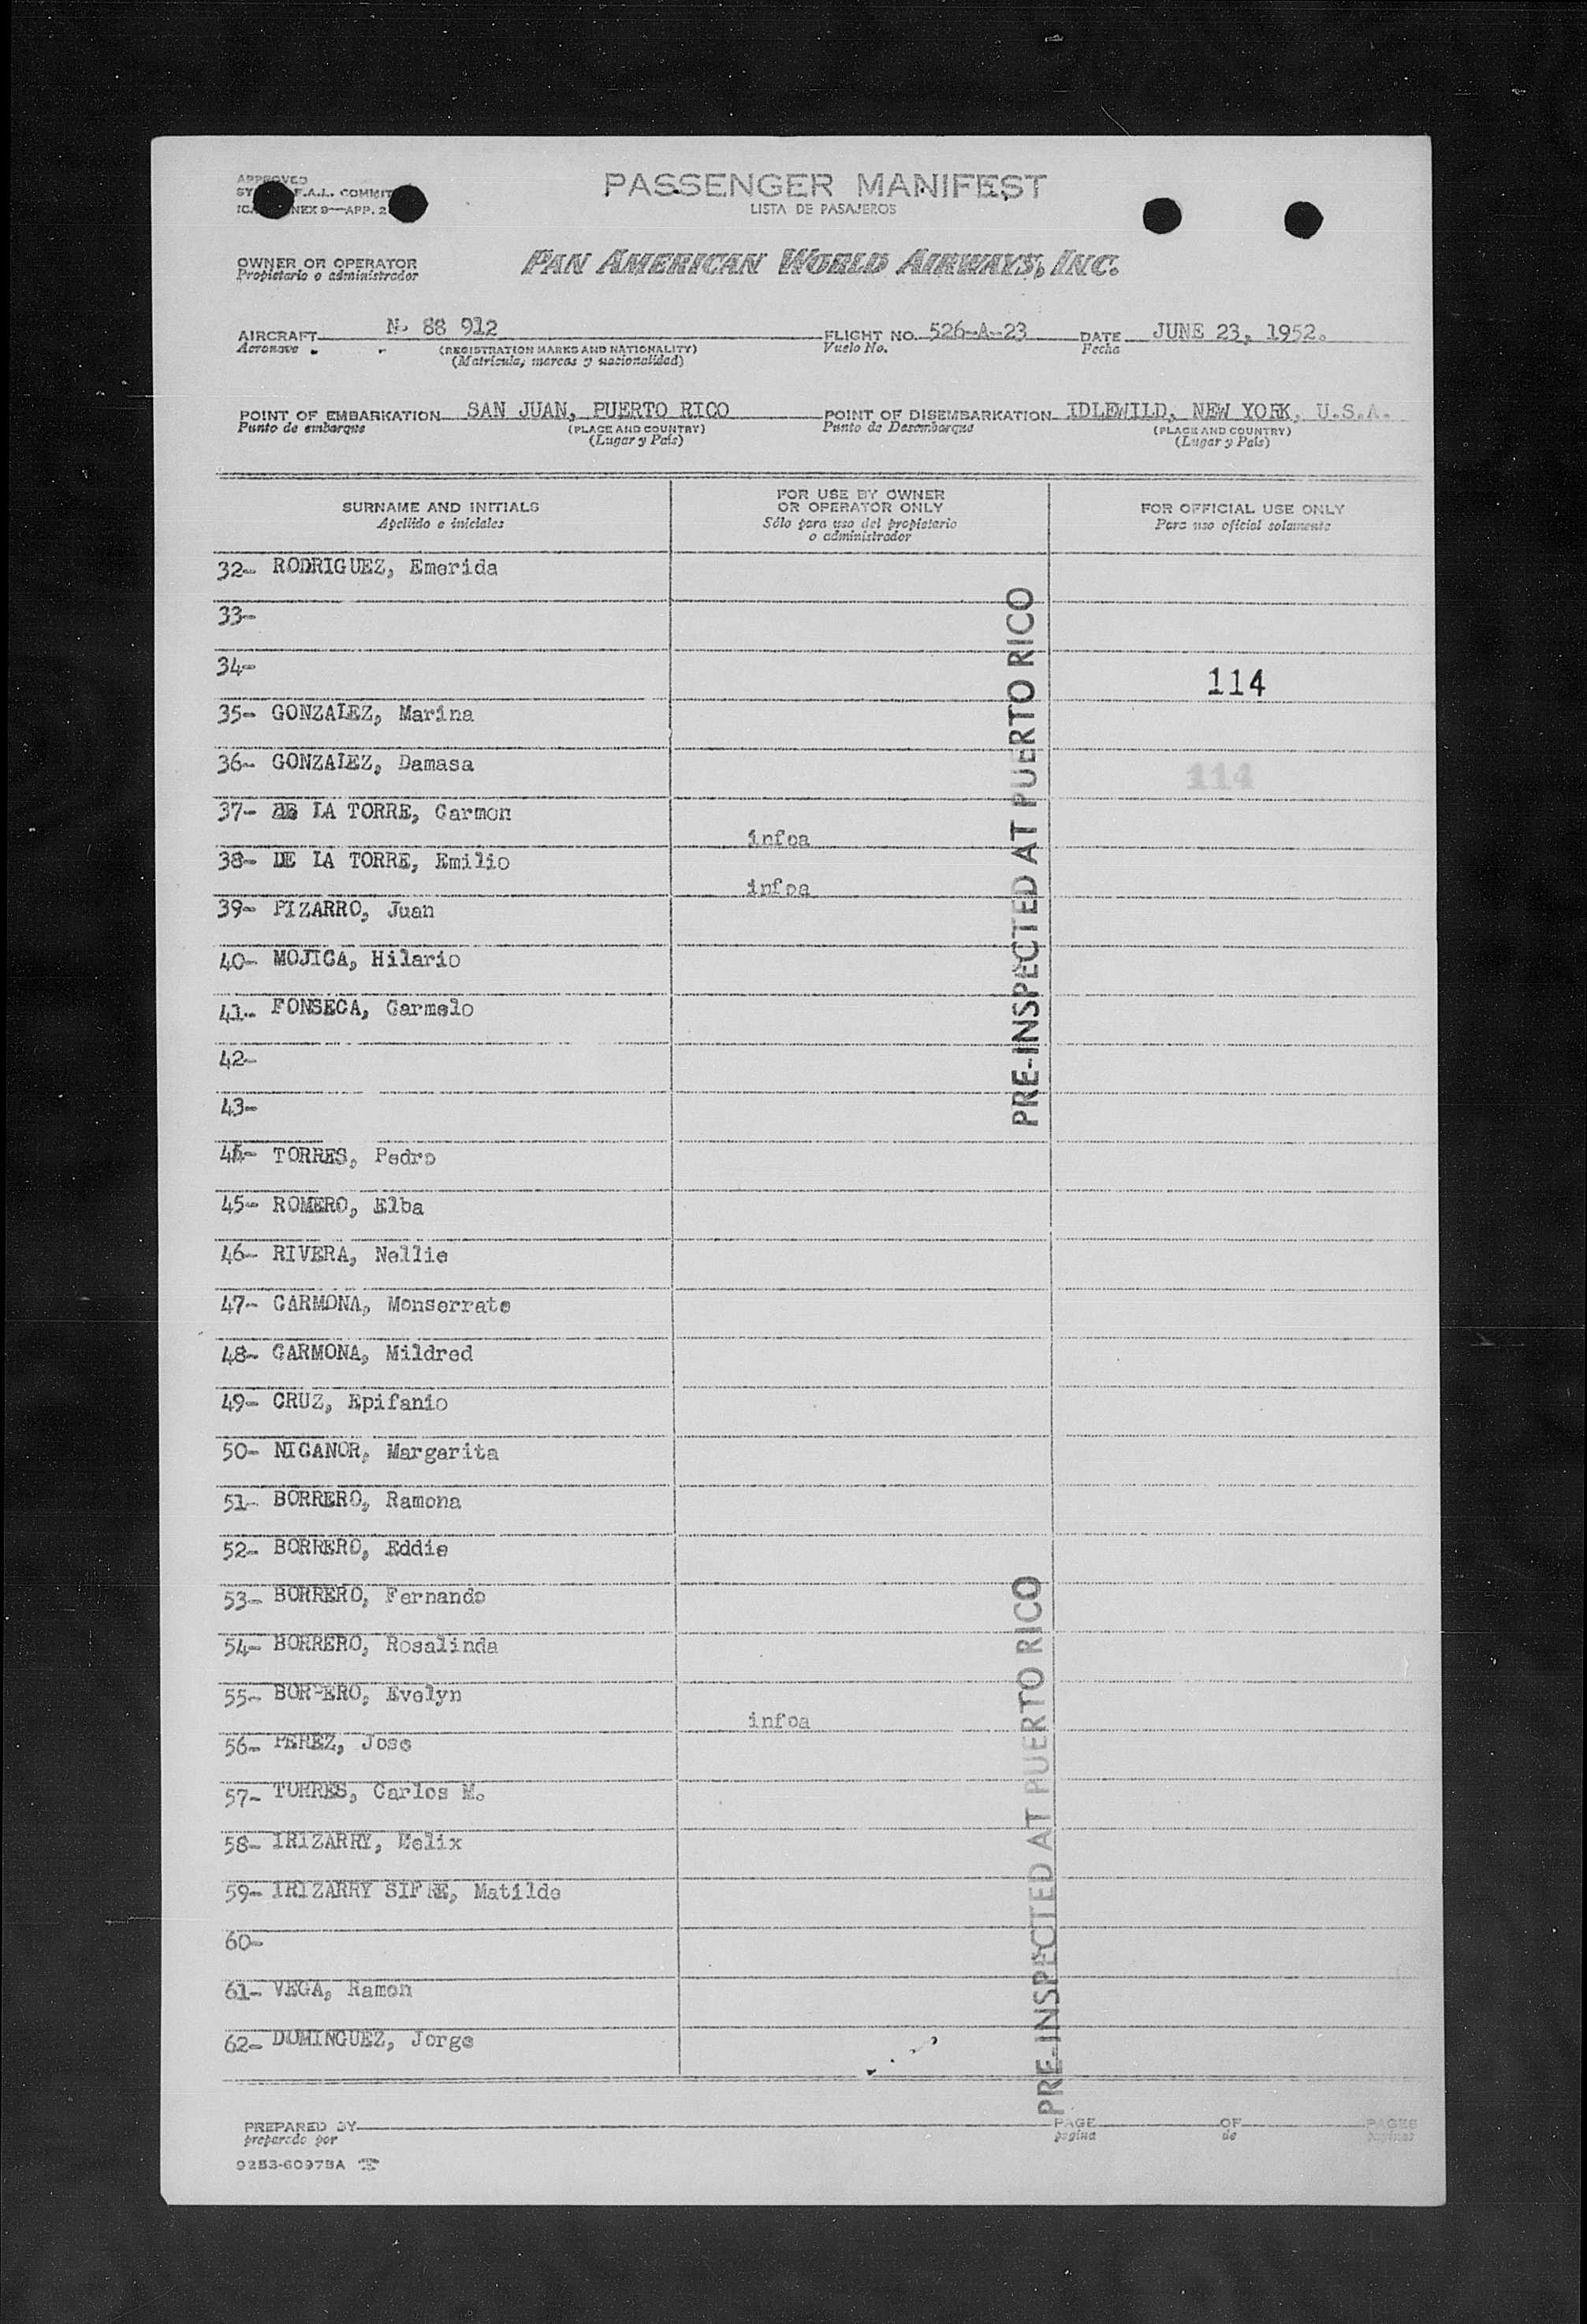 APPROVED
F.A.L. COMMIT
NEX 9—APP. 2
PASSENGER MANIFEST
LISTA DE PASAJEROS
OWNER OR OPERATOR
Propietario o administrador
PAN AMERICAN WORLD AIRWAYS, INC.
AIRCRAFT N- 88 912 FLIGHT NO. 526-A-23 DATE JUNE 23, 1952.
Aeronave (REGISTRATION MARKS AND NATIONALITY) Vuelo No. Fecha
(Matrícula, marcas y nacionalidad)
POINT OF EMBARKATION SAN JUAN, PUERTO RICO POINT OF DISEMBARKATION IDLEWILD, NEW YORK, U.S.A.
Punto de embarque (PLACE AND COUNTRY) Punto de Desembarque (PLACE AND COUNTRY)
(Lugar y País) (Lugar y País)
SURNAME AND INITIALS
Apellido e iniciales
FOR USE BY OWNER
OR OPERATOR ONLY
Sólo para uso del propietario
o administrador
FOR OFFICIAL USE ONLY
Para uso oficial solamente
32- RODRIGUEZ, Emerida
33-
34-
114
35- GONZALEZ, Marina
36- GONZALEZ, Damasa
114
37- DE LA TORRE, Carmen
infoa
38- DE LA TORRE, Emilio
infoa
39- PIZARRO, Juan
40- MOJICA, Hilario
41- FONSECA, Carmelo
42-
43-
44- TORRES, Pedro
45- ROMERO, Elba
46- RIVERA, Nellie
47- CARMONA, Monserrate
48- CARMONA, Mildred
49- CRUZ, Epifanio
50- NICANOR, Margarita
51- BORRERO, Ramona
52- BORRERO, Eddie
53- BORRERO, Fernando
54- BORRERO, Rosalinda
55- BORRERO, Evelyn
infoa
56- PEREZ, Jose
57- TORRES, Carlos M.
58- IRIZARRY, Felix
59- IRIZARRY SIFRE, Matilde
60-
61- VEGA, Ramon
62- DOMINGUEZ, Jorge
PRE-INSPECTED AT PUERTO RICO
PRE-INSPECTED AT PUERTO RICO
PREPARED BY PAGE OF PAGES
preparado por pagina de paginas
9253-60975A